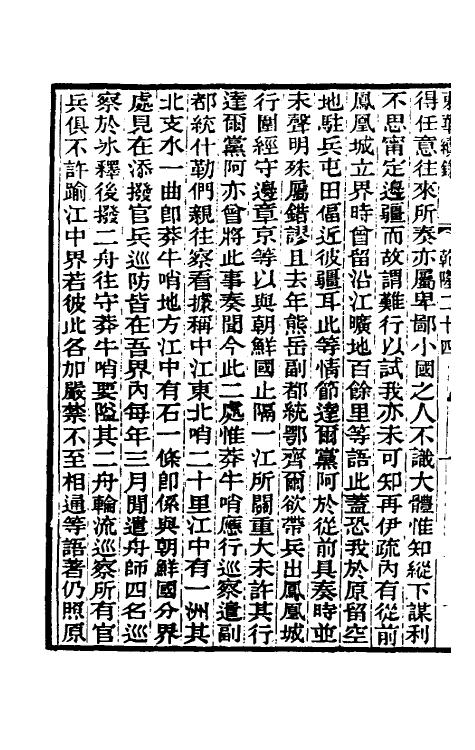 乾隆二十四
得任意往來所奏亦屬卑鄙小國之人不識大體惟知縱下謀利
不思甯定邊疆而故謂難行以試我亦未可知再伊疏內有從前
鳳凰城立界時曾留沿江曠地百餘里等語此蓋恐我於原留空
地駐兵屯田偪近彼疆耳此等情節達爾黨阿於從前具奏時並
未聲明殊屬錯謬且去年熊岳副都統鄂齊爾欲帶兵出鳳凰城
行圍經守邊章京等以與朝鮮國止隔一江所關重大未許其行
達爾黨阿亦曾將此事奏聞今此二處惟莽牛哨應行巡察遣副
都統什勒們親往察看據稱中江東北哨二十里江中有一洲其
北支水一曲卽莽牛哨地方江中有石一條卽係與朝鮮國分界
處見在添撥官兵巡防皆在吾界內每年三月聞遣舟師四名巡
察於冰釋後撥二舟往守莽牛哨要隘其二舟輪流巡察所有官
兵俱不許踰江中界若彼此各加嚴禁不至相通等語著仍照原